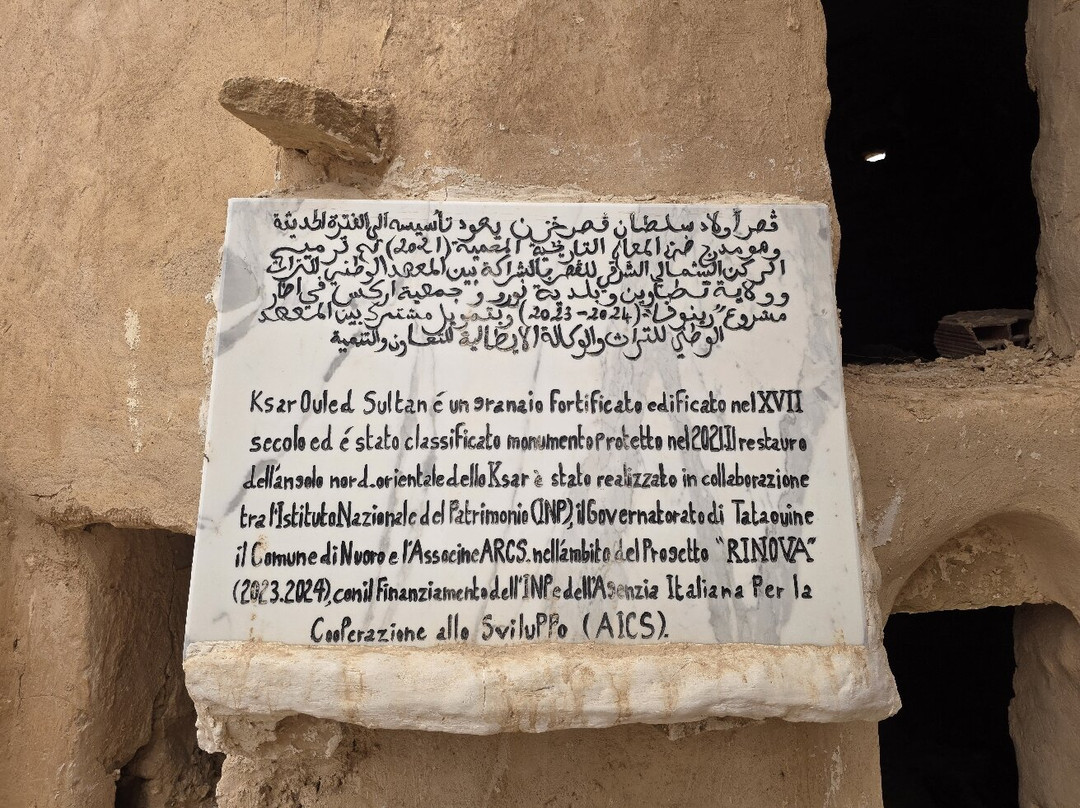 قصر أولاد سلطان قصر خزن يعود تأسيسه الى الفترة الحديثة
وهو مدرج ضمن المعالم التاريخية المحمية (2021) تم ترميم
الركن الشمالي الشرقي للقصر بالشراكة بين المعهد الوطني للتراث
وولاية تطاوين وبلدية نورو وجمعية اركس في اطار
مشروع "رينوفا" (2024-2023) وبتمويل مشترك بين المعهد
الوطني للتراث والوكالة الايطالية للتعاون والتنمية
Ksar Ouled Sultan é un granaio Fortificato edificato nel XVII
secolo ed é stato classificato monumento protetto nel 2021.Il restauro
dell'angolo nord-orientale dello Ksar è stato realizzato in collaborazione
tra l'Istituto Nazionale del Patrimonio (INP), il Governatorato di Tataouine
il Comune di Nuoro e l'Associne ARCS. nell'ámbito del Progetto "RINOVA"
(2023.2024), con il Finanziamento dell'INP e dell'Agenzia Italiana Per la
CooPerazione allo SviluPPo (AICS).